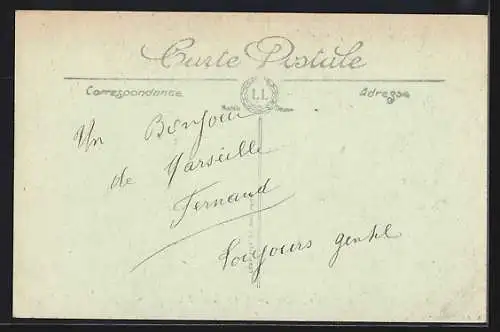 Carte Postale
Correspondance
LL
Adresse
Un Bonjour
de Marseille
Fernand
Toujours gentil